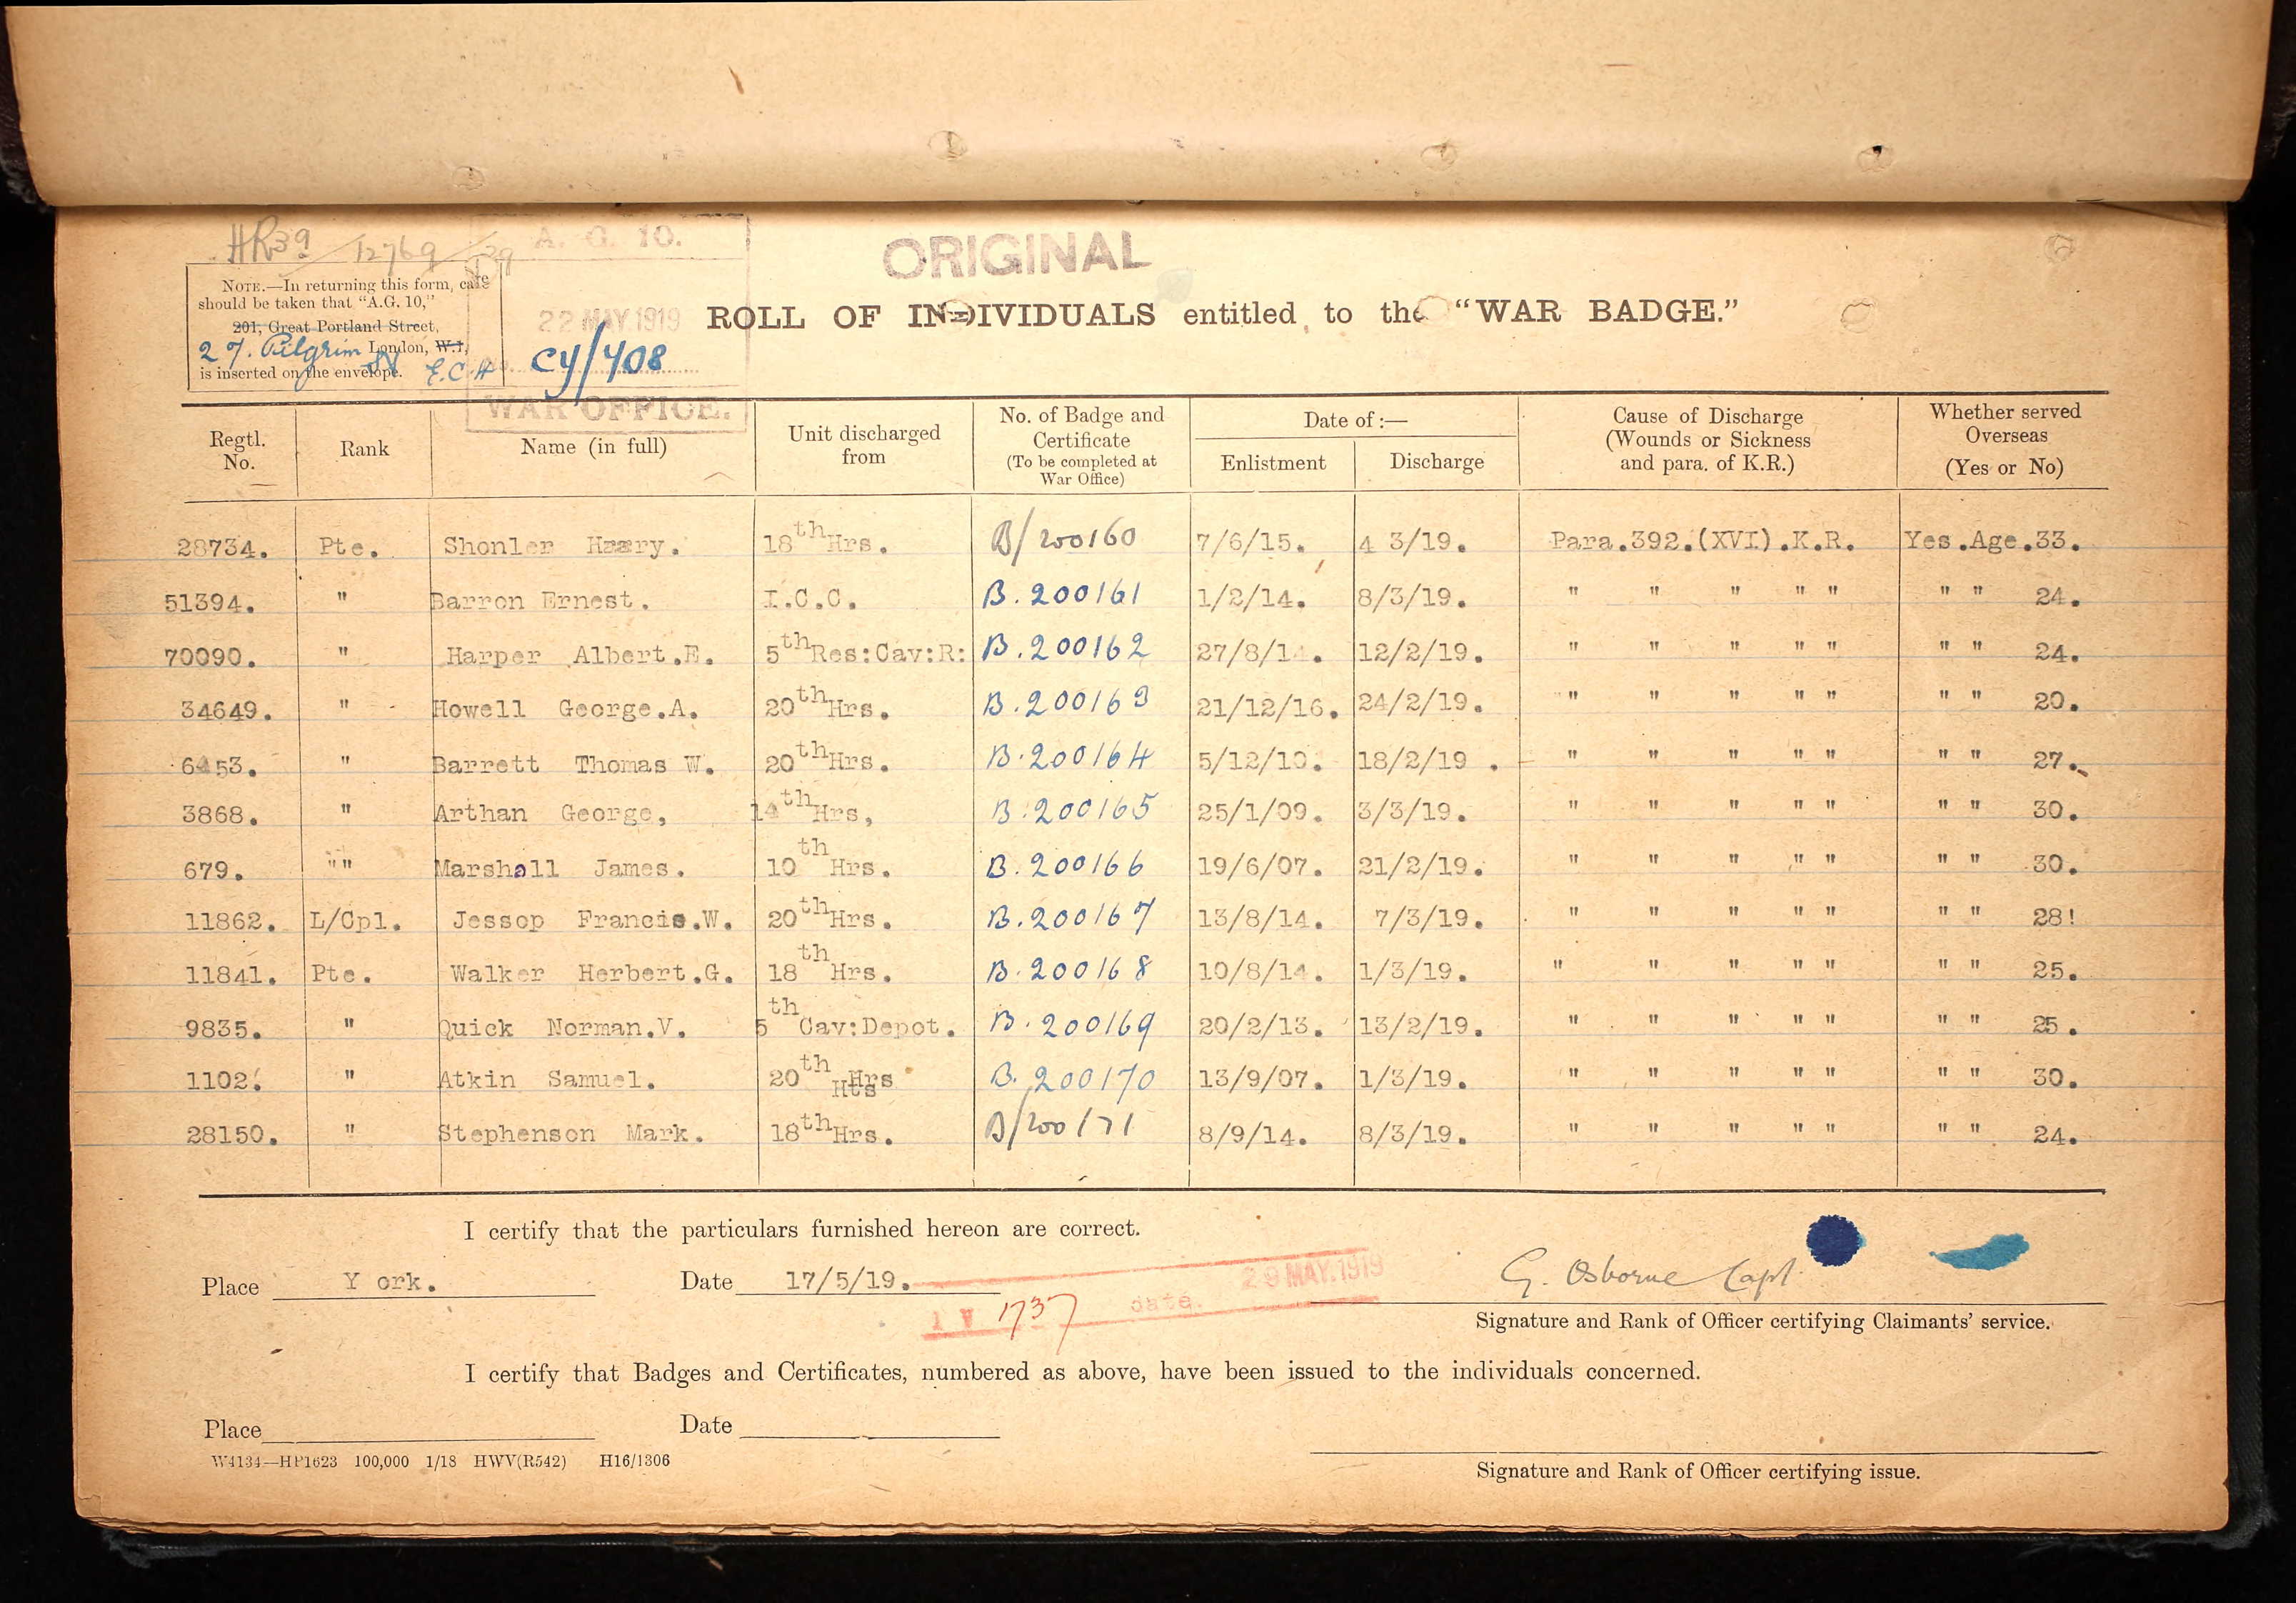 HR39/12769/39
A. G. 10.
ORIGINAL
NOTE.—In returning this form, care
should be taken that "A.G. 10,"
201, Great Portland Street,
27. Pilgrim St London, W.1,
is inserted on the envelope. E.C.4
22 MAY 1919
CY/408
WAR OFFICE.
ROLL OF INDIVIDUALS entitled to the "WAR BADGE."
Regtl. No. Rank Name (in full) Unit discharged from No. of Badge and Certificate (To be completed at War Office) Date of :— Enlistment Discharge Cause of Discharge (Wounds or Sickness and para. of K.R.) Whether served Overseas (Yes or No)
28734. Pte. Shonler Harry. 18th Hrs. B/200160 7/6/15. 4 3/19. Para.392.(XVI).K.R. Yes.Age.33.
51394. " Barron Ernest. I.C.C. B.200161 1/2/14. 8/3/19. " " " " " " " 24.
70090. " Harper Albert.E. 5th Res:Cav:R: B.200162 27/8/14. 12/2/19. " " " " " " " 24.
34649. " Howell George.A. 20th Hrs. B.200163 21/12/16. 24/2/19. " " " " " " " 20.
6453. " Barrett Thomas W. 20th Hrs. B.200164 5/12/10. 18/2/19 . " " " " " " " 27.
3868. " Arthan George, 14th Hrs, B.200165 25/1/09. 3/3/19. " " " " " " " 30.
679. "" Marshall James. 10th Hrs. B.200166 19/6/07. 21/2/19. " " " " " " " 30.
11862. L/Cpl. Jessop Francis.W. 20th Hrs. B.200167 13/8/14. 7/3/19. " " " " " " " 28!
11841. Pte. Walker Herbert.G. 18th Hrs. B.200168 10/8/14. 1/3/19. " " " " " " " 25.
9835. " Quick Norman.V. 5th Cav:Depot. B.200169 20/2/13. 13/2/19. " " " " " " " 25.
1102. " Atkin Samuel. 20th Hrs Hts B.200170 13/9/07. 1/3/19. " " " " " " " 30.
28150. " Stephenson Mark. 18th Hrs. B/200171 8/9/14. 8/3/19. " " " " " " " 24.
I certify that the particulars furnished hereon are correct.
Place Y ork. Date 17/5/19.
1737 date. 29 MAY.1919
G. Osborne Capt.
Signature and Rank of Officer certifying Claimants' service.
I certify that Badges and Certificates, numbered as above, have been issued to the individuals concerned.
Place Date
W4134—HP1623 100,000 1/18 HWV(R542) H16/1306
Signature and Rank of Officer certifying issue.